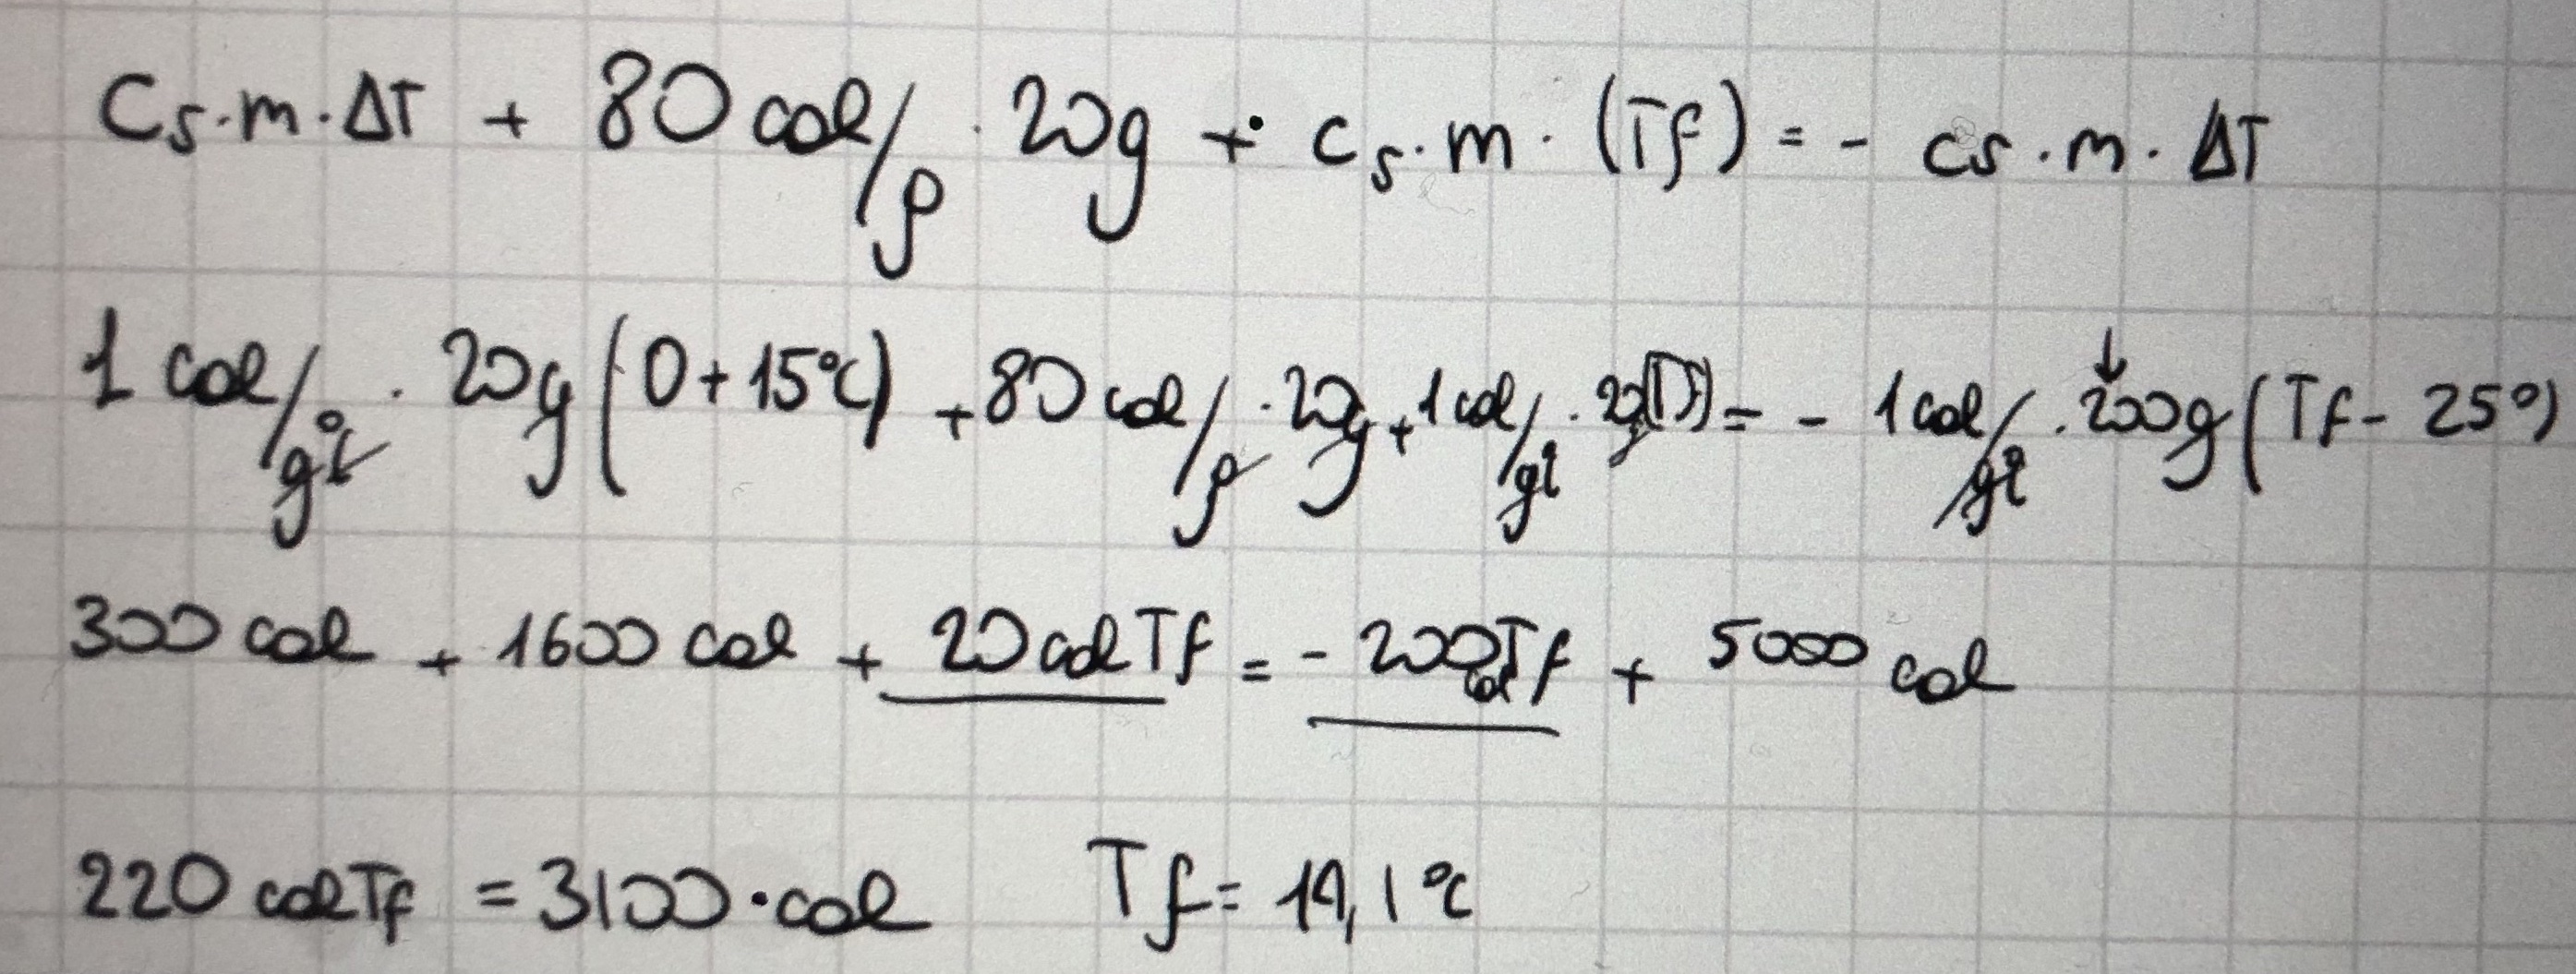 Cs·m·ΔT + 80 cal/g · 20g + cs·m·(Tf) = - cs·m·ΔT
1 cal/g°C · 20g (0+15°C) + 80 cal/g · 20g + 1 cal/g°C · 20g(Tf) = - 1 cal/g°C · 200g (Tf - 25°)
300 cal + 1600 cal + 20 cal Tf = - 200 cal Tf + 5000 cal
220 cal Tf = 3100 · cal Tf = 14,1 °C